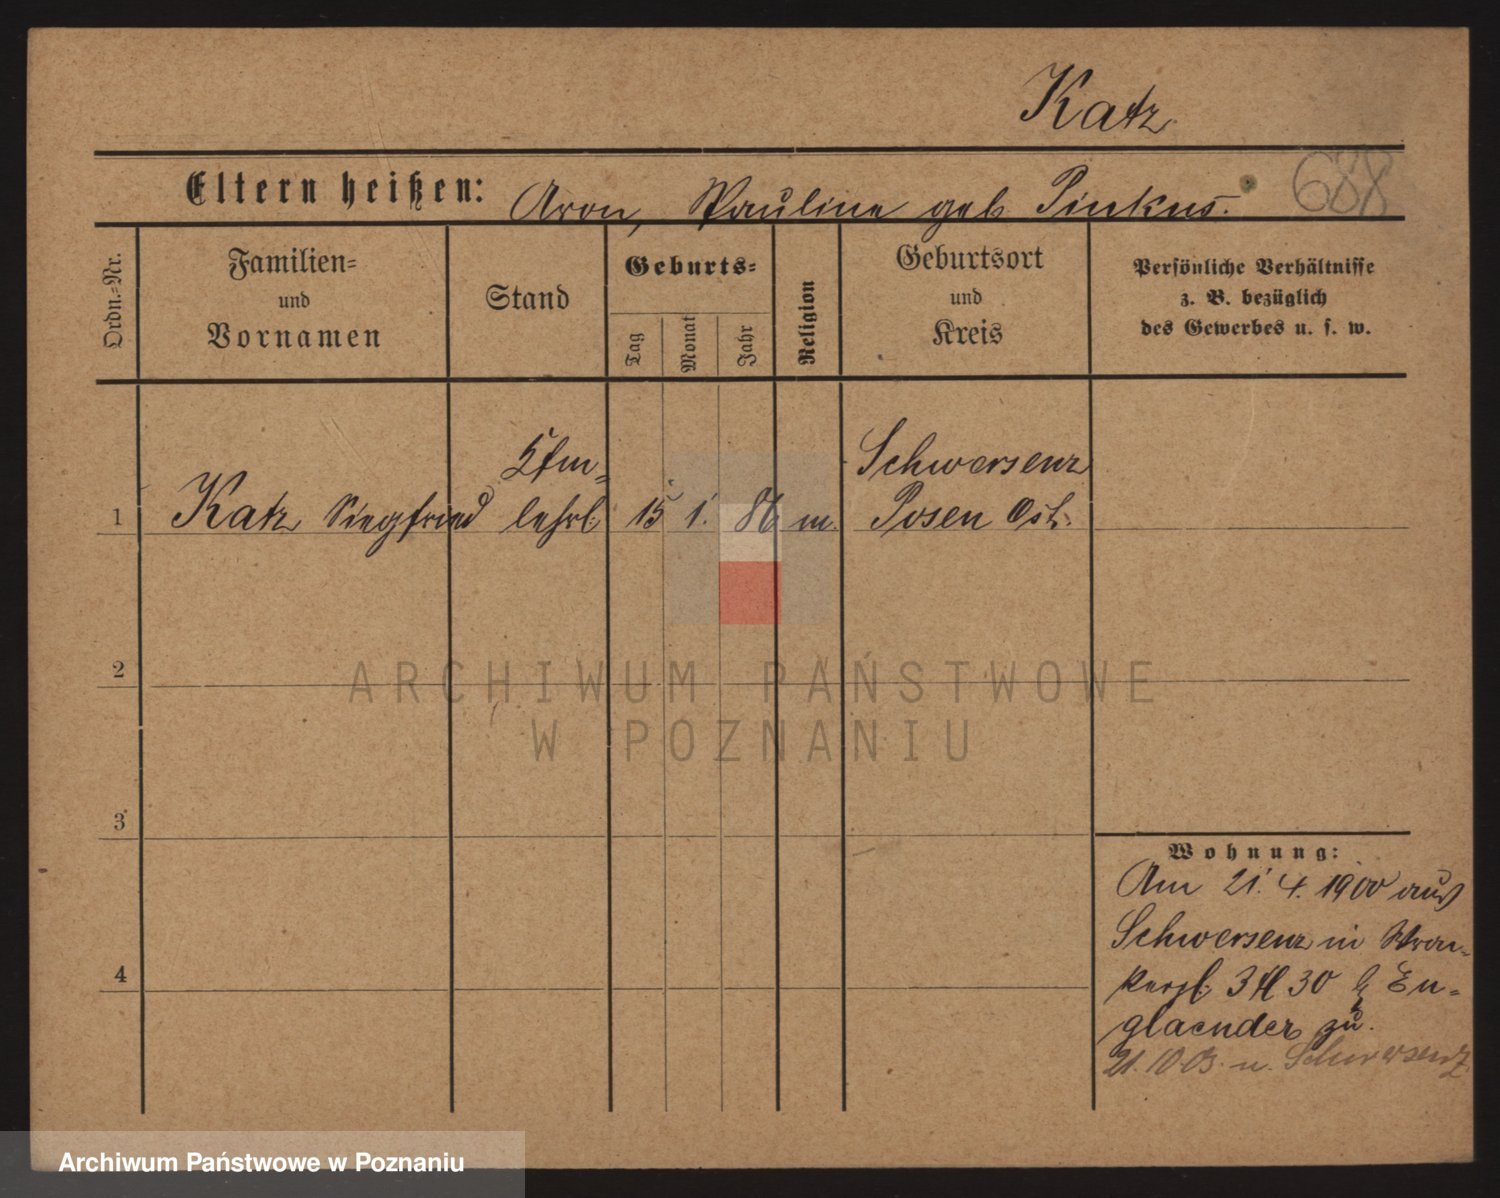 Katz
688
Eltern heißen: Aron, Pauline geb Pinkus.
Ordn.=Nr.
Familien=
und
Vornamen
Stand
Geburts=
Tag
Monat
Jahr
Religion
Geburtsort
und
Kreis
Persönliche Verhältnisse
z. B. bezüglich
des Gewerbes u. s. w.
1
Katz Siegfried
Kfm=
lehrl.
15
1.
86
m.
Schwersenz
Posen Ost.
2
ARCHIWUM PAŃSTWOWE
W POZNANIU
3
4
Wohnung:
Am 21. 4. 1900 aus
Schwersenz in Wron=
kerpl. 3 II 30 b En=
glaender zu.
21.10.03. n. Schwersenz
Archiwum Państwowe w Poznaniu